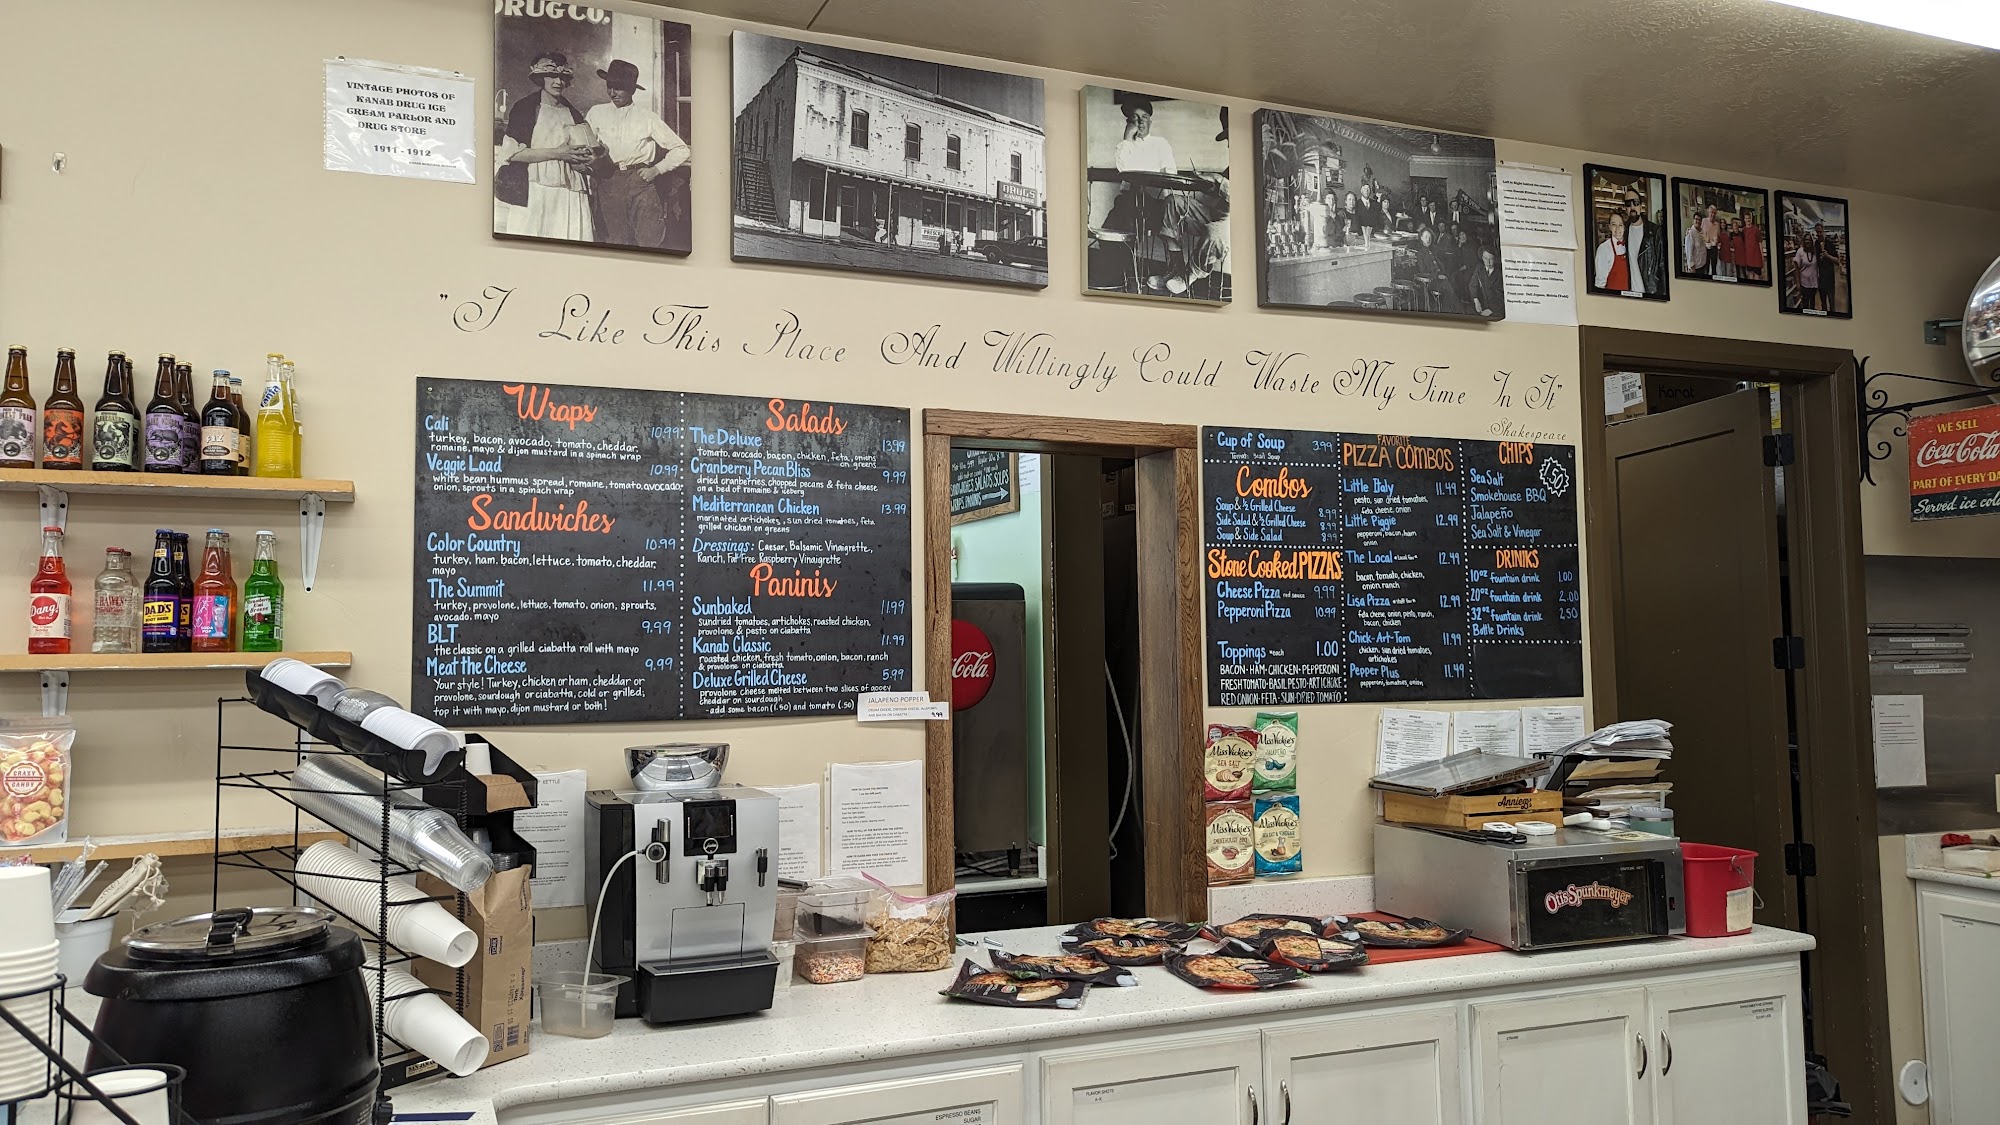 DRUG CO.
VINTAGE PHOTOS OF
KANAB DRUG ICE
CREAM PARLOR AND
DRUG STORE
1911 - 1912
DRUGS
KANAB DRUG
"I Like This Place And Willingly Could Waste My Time In It"
-Shakespeare
Wraps
Cali 10.99
turkey, bacon, avocado, tomato, cheddar,
romaine, mayo & dijon mustard in a spinach wrap
Veggie Load 10.99
white bean hummus spread, romaine, tomato, avocado
onion, sprouts in a spinach wrap
Sandwiches
Color Country 10.99
turkey, ham, bacon, lettuce, tomato, cheddar,
mayo
The Summit 11.99
turkey, provolone, lettuce, tomato, onion, sprouts,
avocado, mayo
BLT 9.99
the classic on a grilled ciabatta roll with mayo
Meat the Cheese 9.99
Your style! Turkey, chicken or ham, cheddar or
provolone, sourdough or ciabatta, cold or grilled;
top it with mayo, dijon mustard or both!
Salads
The Deluxe 13.99
Tomato, avocado, bacon, chicken, feta, onions
on greens
Cranberry Pecan Bliss 9.99
dried cranberries, chopped pecans & feta cheese
on a bed of romaine & iceberg
Mediterranean Chicken 13.99
marinated artichokes, sun dried tomatoes, feta
grilled chicken on greens
Dressings: Caesar, Balsamic Vinaigrette,
Ranch, Fat Free Raspberry Vinaigrette
Paninis
Sunbaked 11.99
sundried tomatoes, artichokes, roasted chicken,
provolone & pesto on ciabatta
Kanab Classic 11.99
roasted chicken, fresh tomato, onion, bacon, ranch
& provolone on ciabatta
Deluxe Grilled Cheese 5.99
provolone cheese melted between two slices of gooey
cheddar on sourdough
- add some bacon (1.50) and tomato (.50)
JALAPENO POPPER
9.99
SANDWICHES, SALADS, SOUPS
WRAPS, PANINIS
Cola
Cup of Soup 3.99
Tomato Basil Soup
Combos
Soup & ½ Grilled Cheese 8.99
Side Salad & ½ Grilled Cheese 8.99
Soup & Side Salad 8.99
Stone Cooked PIZZAS
Cheese Pizza red sauce 9.99
Pepperoni Pizza 10.99
Toppings each 1.00
BACON·HAM·CHICKEN·PEPPERONI
FRESH TOMATO·BASIL PESTO·ARTICHOKE
RED ONION·FETA·SUN-DRIED TOMATO
FAVORITE
PIZZA COMBOS
Little Italy 11.49
pesto, sun dried tomatoes,
feta cheese, onion
Little Piggie 12.99
pepperoni, bacon, ham
onion
The Local 12.49
bacon, tomato, chicken,
onion, ranch
Lisa Pizza 12.99
feta cheese, onion, pesto, ranch,
bacon, chicken
Chick-Art-Tom 11.99
chicken, sun dried tomatoes,
artichokes
Pepper Plus 11.49
pepperoni, tomatoes, onion
CHIPS
Sea Salt
Smokehouse BBQ
Jalapeño
Sea Salt & Vinegar
DRINKS
10oz fountain drink 1.00
20oz fountain drink 2.00
32oz fountain drink 2.50
Bottle Drinks
Karat
WE SELL
Coca-Cola
PART OF EVERY DAY
Served ice cold
Miss Vickie's
SEA SALT
Miss Vickie's
JALAPEÑO
Miss Vickie's
SMOKEHOUSE BBQ
Miss Vickie's
SEA SALT & VINEGAR
Annie's
Otis Spunkmeyer
Fanta
Dang!
DAD'S
ROOT BEER
CRAZY
CANDY
KETTLE
jura
FLAVOR SHOTS
A-K
ESPRESSO BEANS
SUGAR